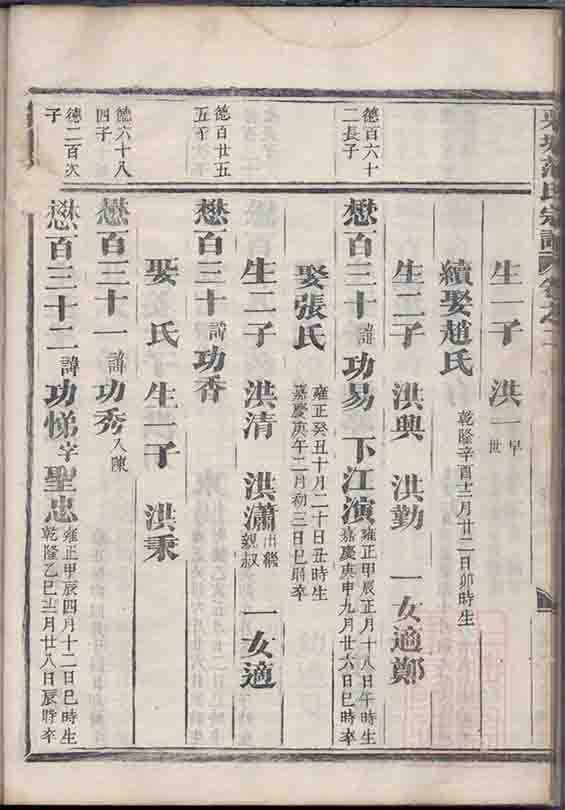 范氏宗譜 卷之二
生一子 洪一 早世
續娶趙氏 乾隆辛酉十二月廿二日卯時生
生二子 洪興 洪勤 一女適鄭
德百六十二長子
懋百三十 諱 功易 下江演 雍正甲辰正月十八日午時生 嘉慶庚申九月廿六日巳時卒
娶張氏 雍正癸丑十月二十日丑時生 嘉慶庚午二月初三日巳時卒
生二子 洪清 洪瀟 出繼親叔 一女適
德百廿五五子
懋百三十 諱 功香
娶 氏 生一子 洪秉
德六十八四子
懋百三十一 諱 功秀 入陳
德二百次子
懋百三十二 諱 功悌 字 聖忠 雍正甲辰四月十二日巳時生 乾隆乙巳十二月廿八日辰時卒